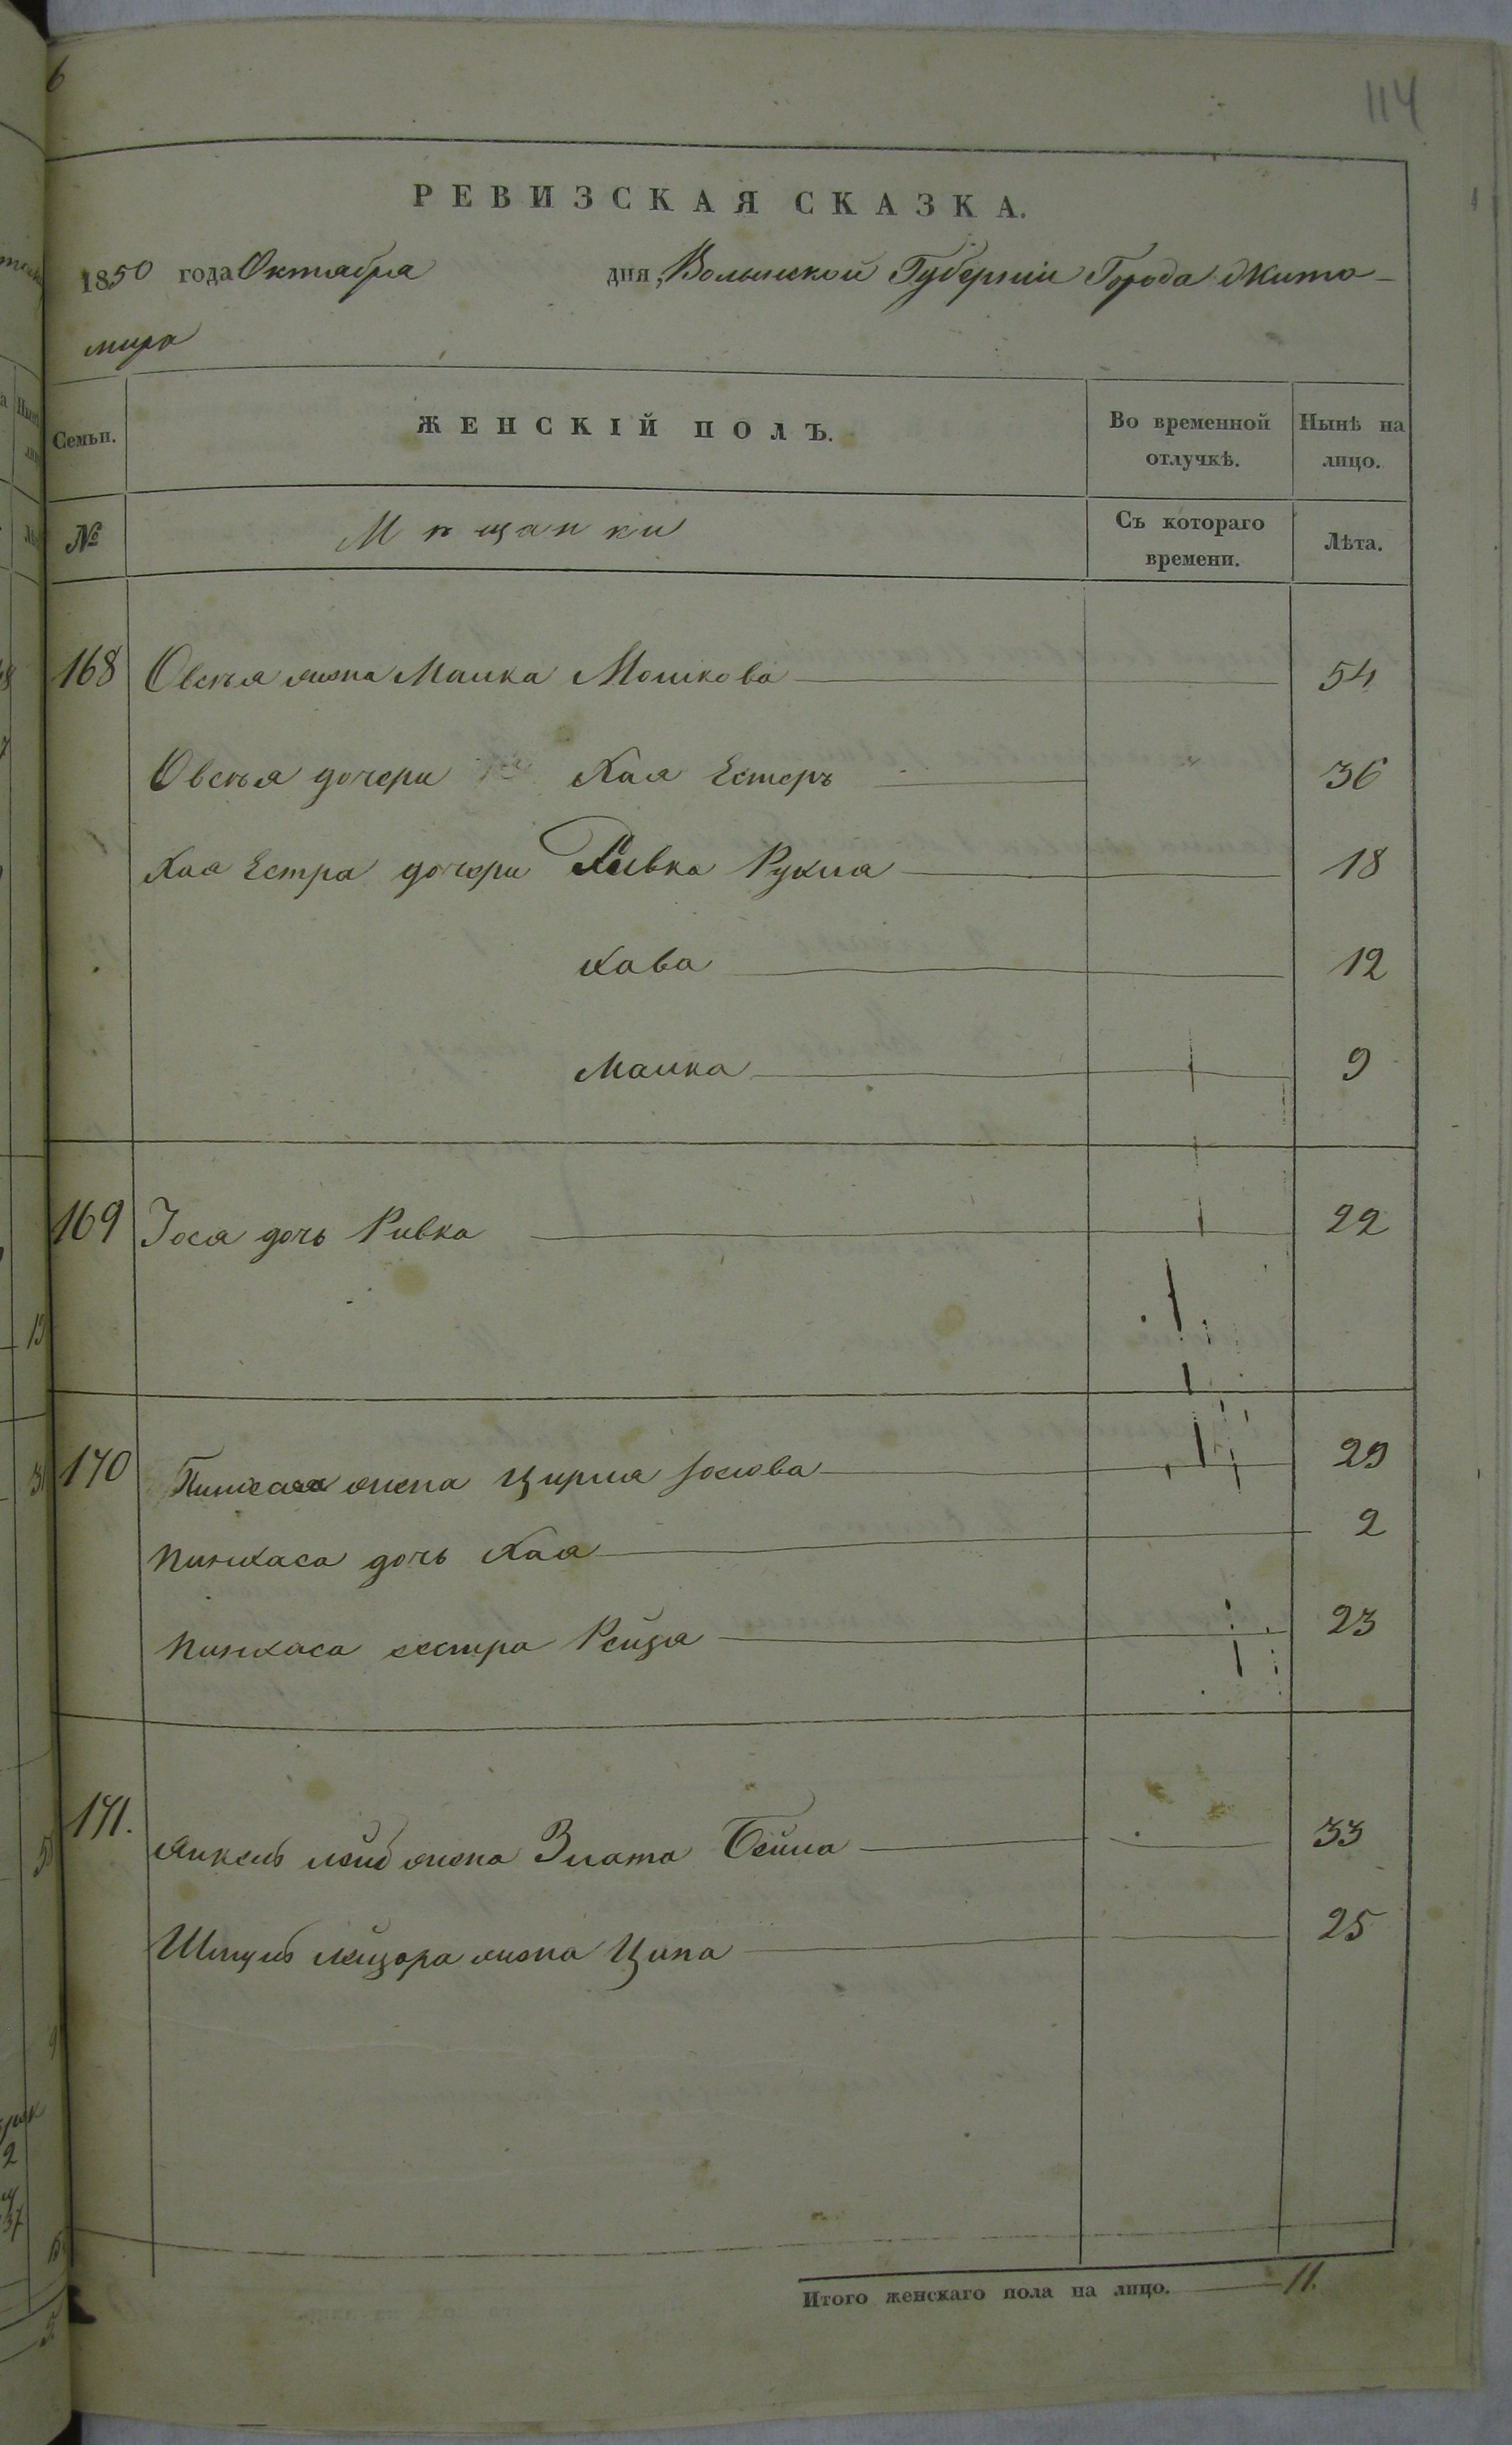 114
РЕВИЗСКАЯ СКАЗКА.
1850 года Октября дня, Волынской Губерніи Города Жито-
мира
Семьи. ЖЕНСКІЙ ПОЛЪ. Во временной отлучкѣ. Нынѣ на лицо.
№ Мѣщанки Съ котораго времени. Лѣта.
168 Овсѣя жена Малка Мошкова 54
Овсѣя дочери Хая Естеръ 36
Хая Естра дочери Ривка Рухля 18
Хава 12
Малка 9
169 Іося дочь Ривка 22
170 Пинхаса жена Цирля Іосіова 29
Пинхаса дочь Хая 2
Пинхаса сестра Рейзя 23
171. Янкель жена Злата Бейла 33
Шмуль Лейзора жена Ципа 25
Итого женскаго пола на лицо. 11.